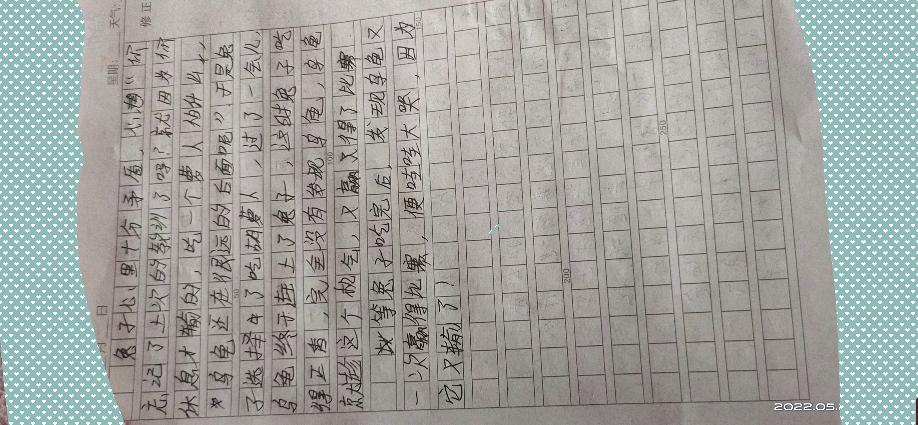 天气:
修正
星期:
月 日
兔子心里十分矛盾,心想“你
忘记了上次的教训了吗?就因为你
休息才输的,吃一个萝卜
乌龟还在很远的后面呢”,于是兔
子选择了吃胡萝卜,过了一会儿,
乌龟终于赶上了兔子,这时兔子吃
得正香,完全没有发现乌龟,乌龟
就趁这个机会,又赢得了比赛
等兔子吃完后,发现乌龟又
一次赢得比赛,便哇哇大哭,因为
它又输了!
100
200
250
2022.05.